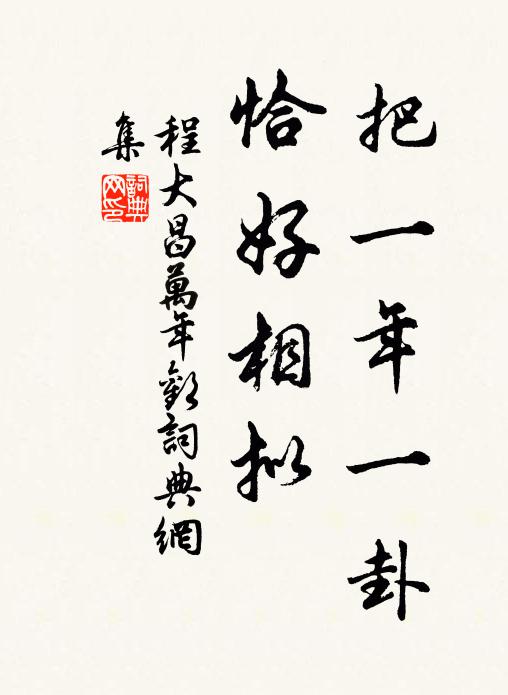 把一年一卦
恰好相拟
程大昌萬年歡詞典網
集
詞典
网印